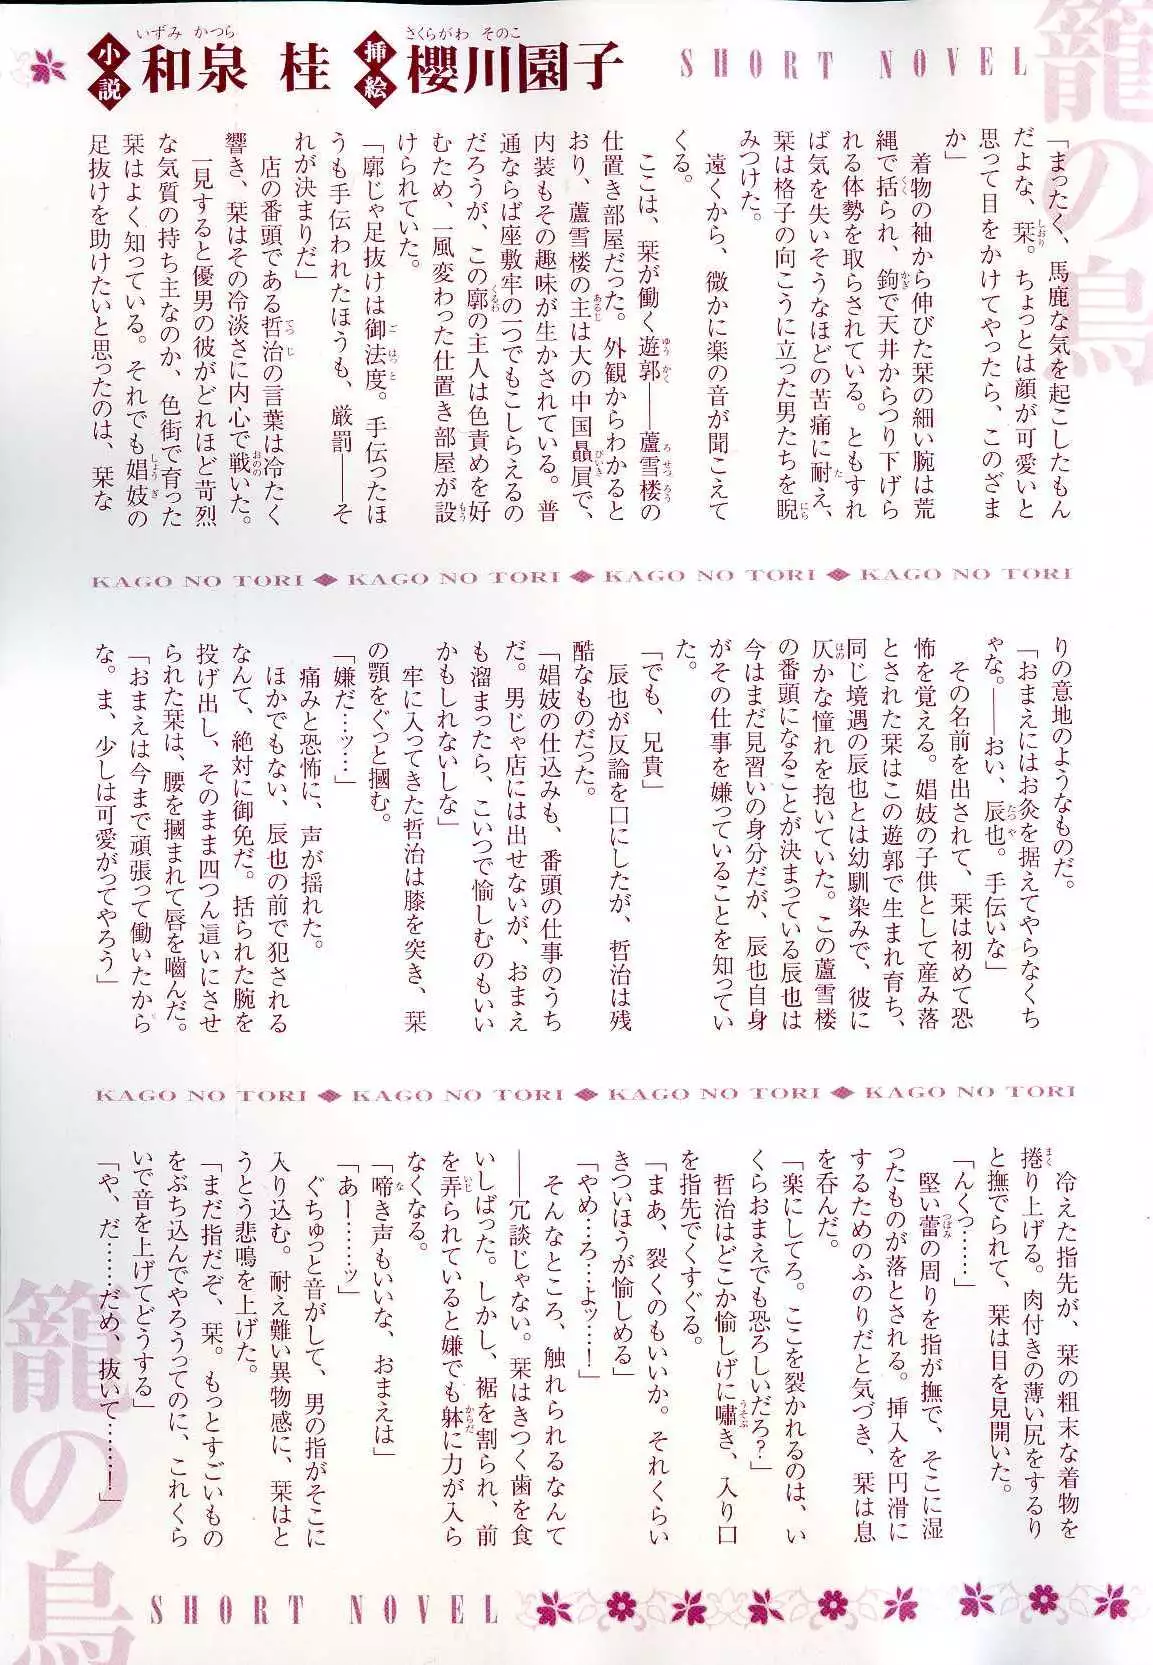 籠の鳥
SHORT NOVEL
小説 和泉 桂 いずみ かつら
挿絵 櫻川園子 さくらがわ そのこ
「まったく、馬鹿な気を起こしたもん
だよな、栞。ちょっとは顔が可愛いと
思って目をかけてやったら、このざま
か」
着物の袖から伸びた栞の細い腕は荒
縄で括られ、鉤で天井からつり下げら
れる体勢を取らされている。ともすれ
ば気を失いそうなほどの苦痛に耐え、
栞は格子の向こうに立った男たちを睨
みつけた。
遠くから、微かに楽の音が聞こえて
くる。
ここは、栞が働く遊郭――蘆雪楼の
仕置き部屋だった。外観からわかると
おり、蘆雪楼の主は大の中国贔屓で、
内装もその趣味が生かされている。普
通ならば座敷牢の一つでもこしらえるの
だろうが、この廓の主人は色責めを好
むため、一風変わった仕置き部屋が設
けられていた。
「廓じゃ足抜けは御法度。手伝ったほ
うも手伝われたほうも、厳罰――そ
れが決まりだ」
店の番頭である哲治の言葉は冷たく
響き、栞はその冷淡さに内心で戦いた。
一見すると優男の彼がどれほど苛烈
な気質の持ち主なのか、色街で育った
栞はよく知っている。それでも娼妓の
足抜けを助けたいと思ったのは、栞な
KAGO NO TORI ◆ KAGO NO TORI ◆ KAGO NO TORI ◆ KAGO NO TORI
りの意地のようなものだ。
「おまえにはお灸を据えてやらなくち
ゃな。――おい、辰也。手伝いな」
その名前を出されて、栞は初めて恐
怖を覚える。娼妓の子供として産み落
とされた栞はこの遊郭で生まれ育ち、
同じ境遇の辰也とは幼馴染みで、彼に
仄かな憧れを抱いていた。この蘆雪楼
の番頭になることが決まっている辰也は
今はまだ見習いの身分だが、辰也自身
がその仕事を嫌っていることを知ってい
た。
「でも、兄貴」
辰也が反論を口にしたが、哲治は残
酷なものだった。
「娼妓の仕込みも、番頭の仕事のうち
だ。男じゃ店には出せないが、おまえ
も溜まったら、こいつで愉しむのもいい
かもしれないしな」
牢に入ってきた哲治は膝を突き、栞
の顎をぐっと摑む。
「嫌だ…ッ…」
痛みと恐怖に、声が揺れた。
ほかでもない、辰也の前で犯される
なんて、絶対に御免だ。括られた腕を
投げ出し、そのまま四つん這いにさせ
られた栞は、腰を摑まれて唇を嚙んだ。
「おまえは今まで頑張って働いたから
な。ま、少しは可愛がってやろう」
KAGO NO TORI ◆ KAGO NO TORI ◆ KAGO NO TORI ◆ KAGO NO TORI
冷えた指先が、栞の粗末な着物を
捲り上げる。肉付きの薄い尻をするり
と撫でられて、栞は目を見開いた。
「んくっ……」
堅い蕾の周りを指が撫で、そこに湿
ったものが落とされる。挿入を円滑に
するためのふのりだと気づき、栞は息
を呑んだ。
「楽にしてろ。ここを裂かれるのは、い
くらおまえでも恐ろしいだろ?」
哲治はどこか愉しげに嘯き、入り口
を指先でくすぐる。
「まあ、裂くのもいいか。それくらい
きついほうが愉しめる」
「やめ…ろ…よッ…!」
そんなところ、触れられるなんて
――冗談じゃない。栞はきつく歯を食
いしばった。しかし、裾を割られ、前
を弄られていると嫌でも躰に力が入ら
なくなる。
「啼き声もいいな、おまえは」
「あー……ッ」
ぐちゅっと音がして、男の指がそこに
入り込む。耐え難い異物感に、栞はと
うとう悲鳴を上げた。
「まだ指だぞ、栞。もっとすごいもの
をぶち込んでやろうってのに、これくら
いで音を上げてどうする」
「や、だ……だめ、抜いて……!」
籠の鳥
SHORT NOVEL